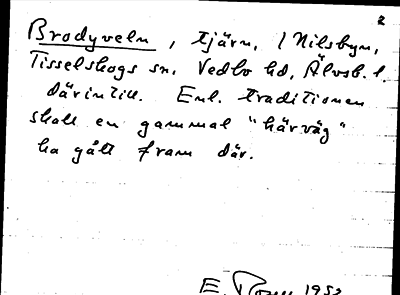 2
Brodyveln, tjärn, i Nilsbyn,
Tisselskogs sn, Vedbo hd, Älvsb. l.
därintill. Enl. traditionen
skall en gammal "härväg"
ha gått fram där.
E. 1952